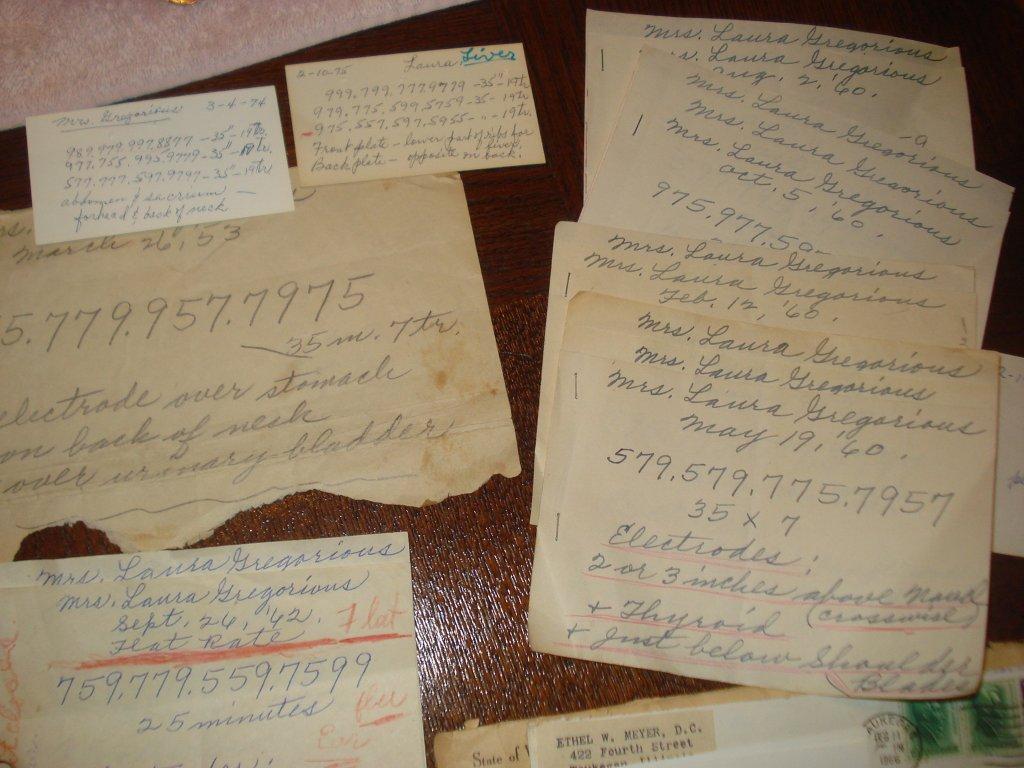 Mrs. Gregorious 3-4-74
989.979.997.8877 -35"-19tr.
977.755.995.9779-35-19tr.
577.777.597.9797-35-19tr
abdomen & sacrium -
forhead & back of neck
2-10-75 Laura Liver
999.799.777.9779 -35"-19tr
979.775.599.5759-35-19tr
975.557.597.5955- " -19tr.
Front plate - lower part of ribs for liver.
Back plate - opposite on back.
March 26, '53
5.779.957.7975
35 m. 7tr.
electrode over stomach
on back of neck
over urinary bladder
Mrs. Laura Gregorious
Mrs. Laura Gregorious
Sept. 26, '62.
Flat Rate Flat
759.779.559.7599
25 minutes
Mrs. Laura Gregorious
Laura Gregorious
Aug. 2, '60.
Mrs. Laura Gregorious
Mrs. Laura Gregorious
Oct. 5, '60.
975.977.59
Mrs. Laura Gregorious
Mrs. Laura Gregorious
Feb. 12, '60.
Mrs. Laura Gregorious
Mrs. Laura Gregorious
Mrs. Laura Gregorious
May 19, '60.
579.579.775.7957
35 x 7
Electrodes:
2 or 3 inches above Navel
(crosswise)
+ Thyroid
+ Just below Shoulder
Blades
State of
ETHEL W. MEYER, D.C.
422 Fourth Street
Waukegan, Illinois
1966